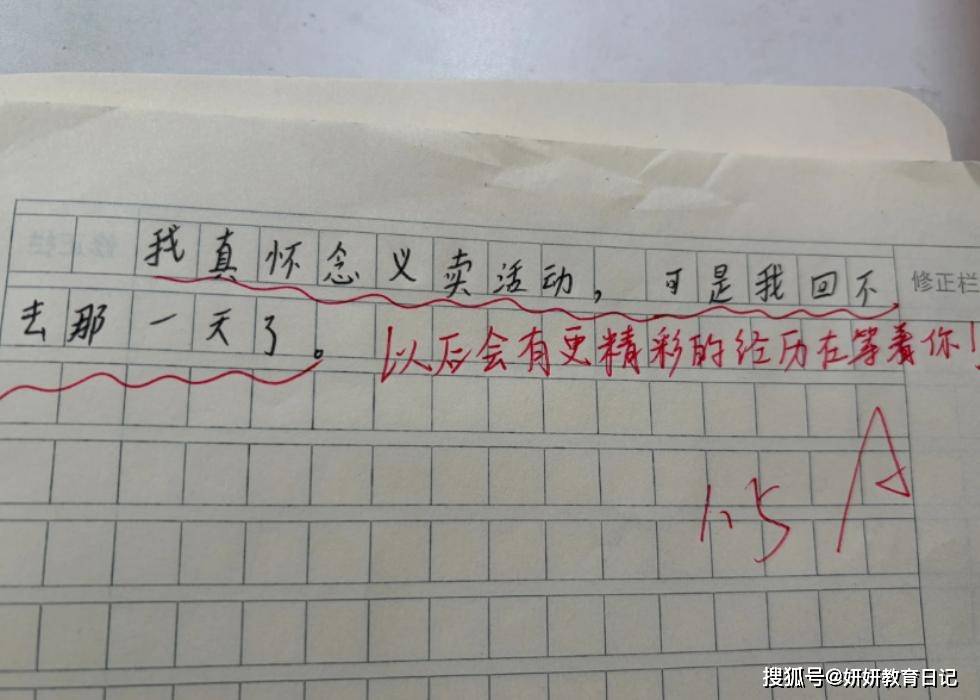 我真怀念义卖活动，可是我回不
修正栏
去那一天了。
以后会有更精彩的经历在等着你！
1.5
A
搜狐号@妍妍教育日记